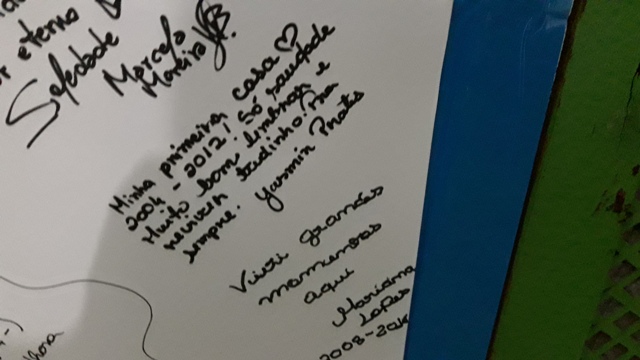 eterno
Saledade
Marcelo
Moreira
Minha primeira casa
2004 - 2012! Só saudade
Muito bom lembrar e
reviver tudinho. Pra
sempre. Yasmin Prates
Vivi grandes
momentos
aqui
Mariana
Lopes
2008-20